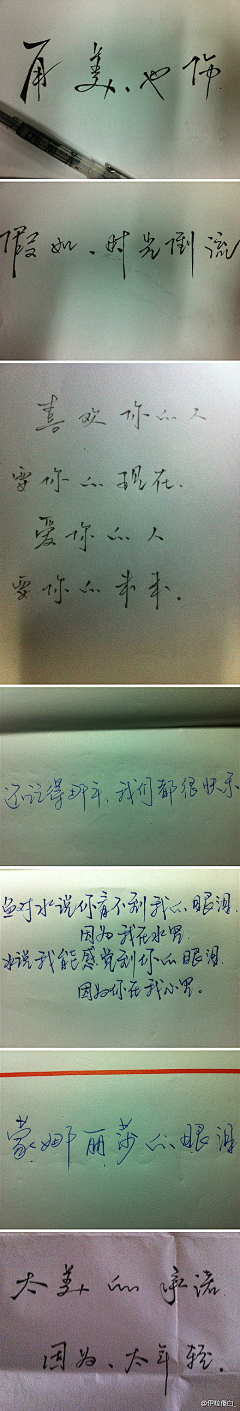 再美、也伤
假如、时光倒流
喜欢你的人
要你的现在.
爱你的人
要你的未来.
还记得那年,我们都很快乐
鱼对水说你看不到我的眼泪.
因为我在水里.
水说我能感觉到你的眼泪.
因为你在我心里。
蒙娜丽莎的眼泪
太美的承诺
因为、太年轻.